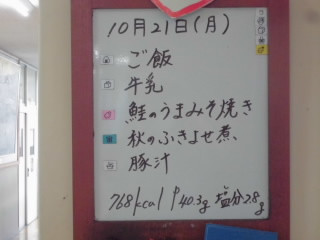 10月21日(月)
ご飯
牛乳
鮭のうまみそ焼き
秋のふきよせ煮
豚汁
768kcal 40.3g 塩分2.8g